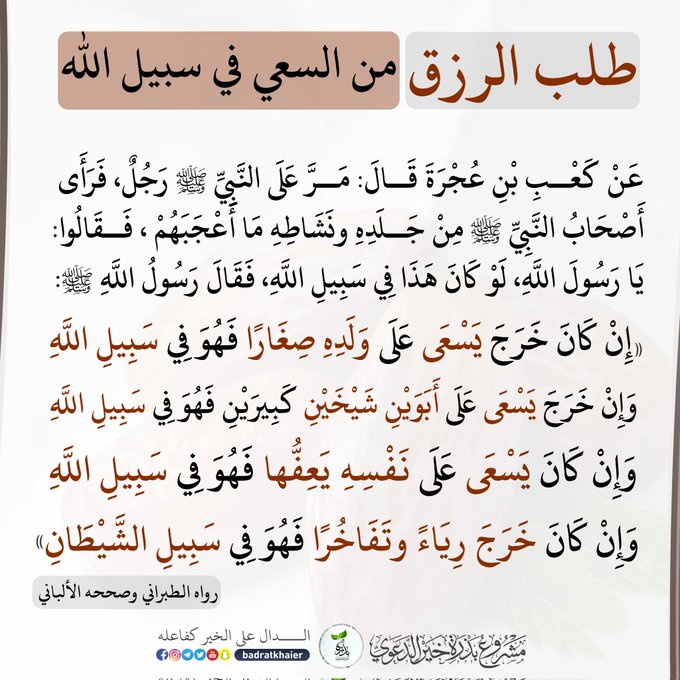 طلب الرزق من السعي في سبيل الله
عَنْ كَعْـبِ بْنِ عُجْرَةَ قَـالَ: مَـرَّ عَلَى النَّبِيِّ ﷺ رَجُلٌ، فَرَأَى
أَصْحَابُ النَّبِيِّ ﷺ مِنْ جَـلَدِهِ ونَشَاطِهِ مَا أَعْجَبَهُمْ ، فَـقَالُوا:
يَا رَسُولَ اللَّهِ، لَوْ كَانَ هَذَا فِي سَبِيلِ اللَّهِ، فَقَالَ رَسُولُ اللَّهِ ﷺ:
«إِنْ كَانَ خَرَجَ يَسْعَى عَلَى وَلَدِهِ صِغَارًا فَهُوَ فِي سَبِيلِ اللَّهِ
وَإِنْ خَرَجَ يَسْعَى عَلَى أَبَوَيْنِ شَيْخَيْنِ كَبِيرَيْنِ فَهُوَ فِي سَبِيلِ اللَّهِ
وَإِنْ كَانَ يَسْعَى عَلَى نَفْسِهِ يَعِفُّها فَهُوَ فِي سَبِيلِ اللَّهِ
وَإِنْ كَانَ خَرَجَ رِيَاءً وتَفَاخُرًا فَهُوَ فِي سَبِيلِ الشَّيْطَانِ»
رواه الطبراني وصححه الألباني
مشروع بذرة خير الدعوي
بذرة
الـدال على الخير كفاعله
badratkhaier